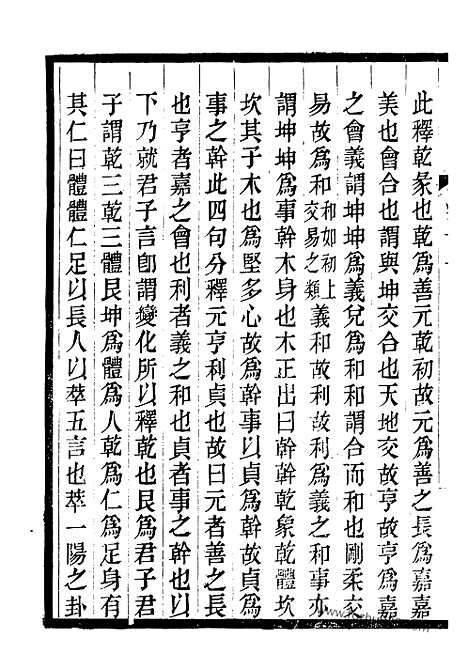 此釋乾彖也乾爲善元乾初故元爲善之長爲嘉嘉
美也會合也謂與坤交合也天地交故亨故亨爲嘉
之會義謂坤坤爲義兌爲和和謂合而和也剛柔交
易故爲和和如初上交易之類義和故利爲義之和事亦
謂坤坤爲事幹木身也木正出曰幹幹乾象乾體坎
坎其于木也爲堅多心故爲幹事以貞爲幹故貞爲
事之幹此四句分釋元亨利貞也故曰元者善之長
也亨者嘉之會也利者義之和也貞者事之幹也以
下乃就君子言卽謂變化所以釋乾也艮爲君子君
子謂乾三乾三體艮坤爲體爲人乾爲仁爲足身有
其仁曰體體仁足以長人以萃五言也萃一陽之卦